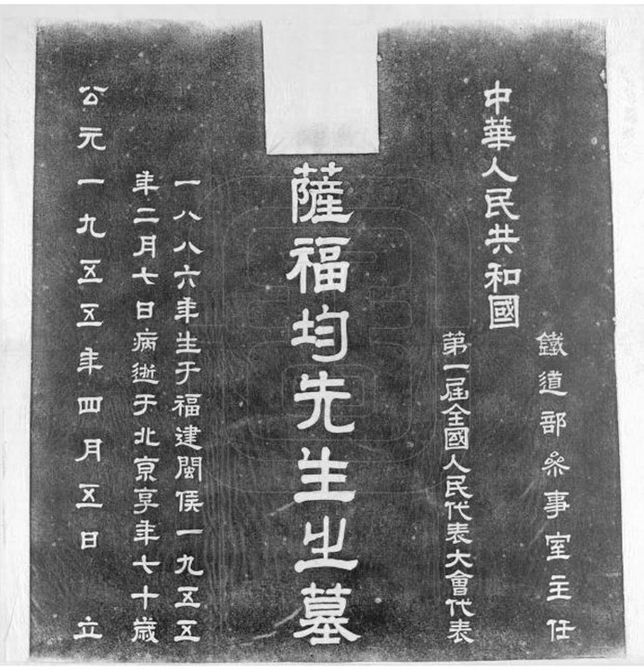 中華人民共和國
鐵道部參事室主任
第一屆全國人民代表大會代表
薩福均先生之墓
一八八六年生于福建閩侯一九五五
年二月七日病逝于北京享年七十歲
公元一九五五年四月五日 立